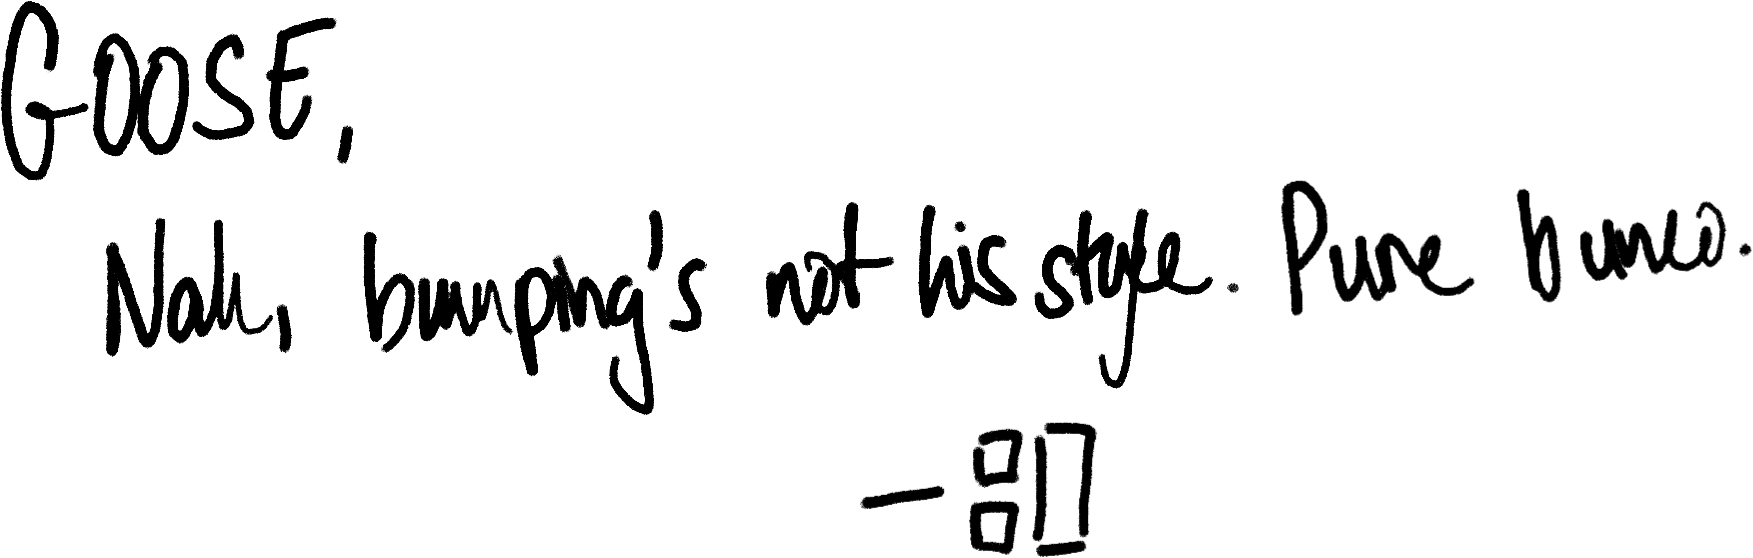 GOOSE,
Nah, bumping's not his style. Pure bunco.